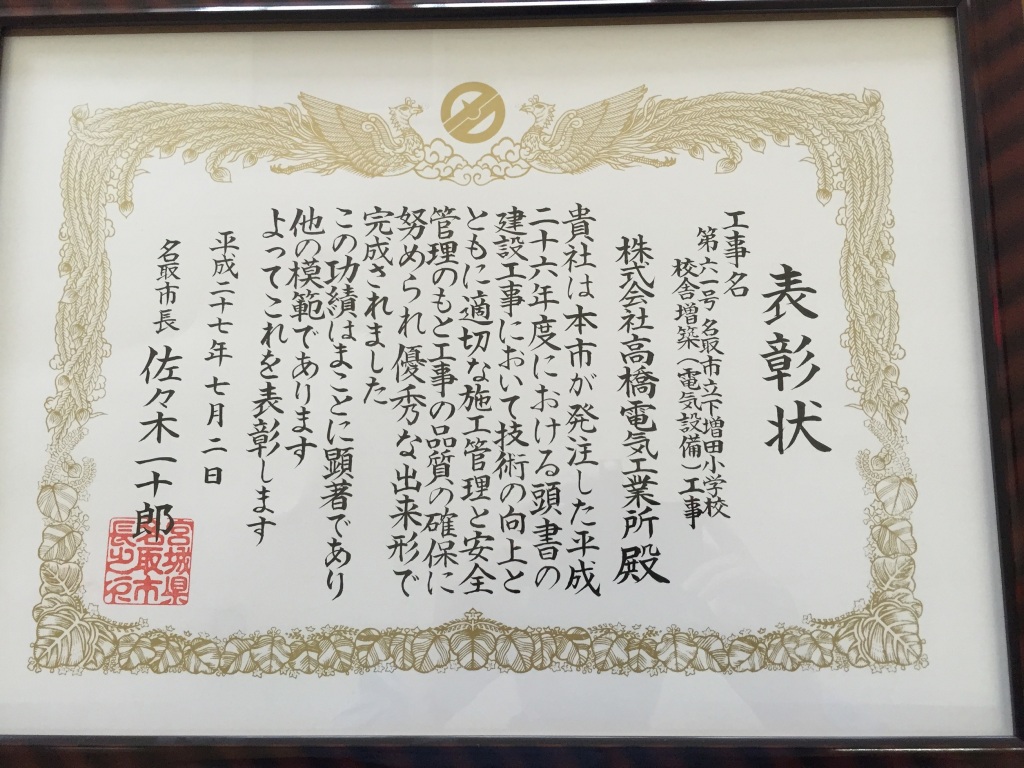 表彰状
工事名
第六一号 名取市立下増田小学校
校舎増築(電気設備)工事
株式会社高橋電気工業所 殿
貴社は本市が発注した平成
二十六年度における頭書の
建設工事において技術の向上と
ともに適切な施工管理と安全
管理のもと工事の品質の確保に
努められ優秀な出来形で
完成されました
この功績はまことに顕著であり
他の模範であります
よってこれを表彰します
平成二十七年七月二日
名取市長 佐々木一十郎
宮城県
名取市
長之印